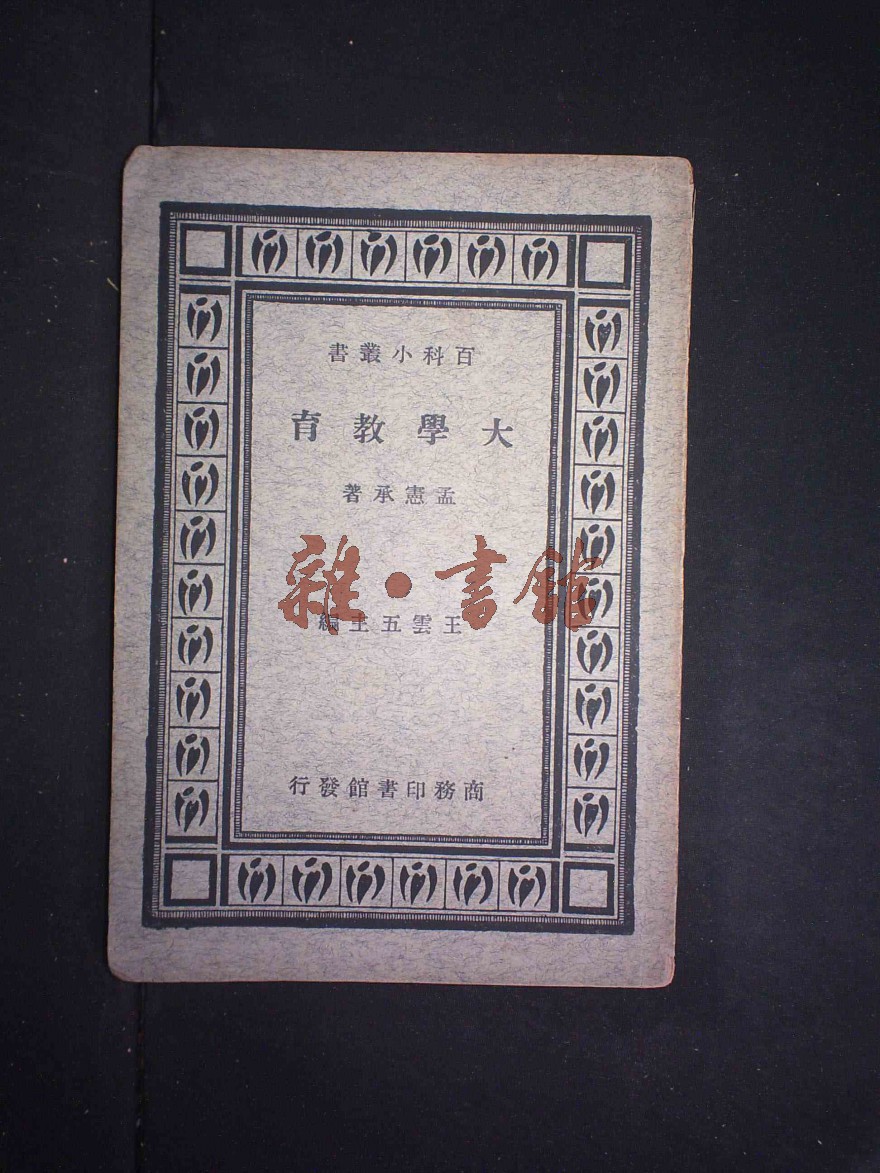 百科小叢書
大學教育
孟憲承著
雜·書館
王雲五主編
商務印書館發行